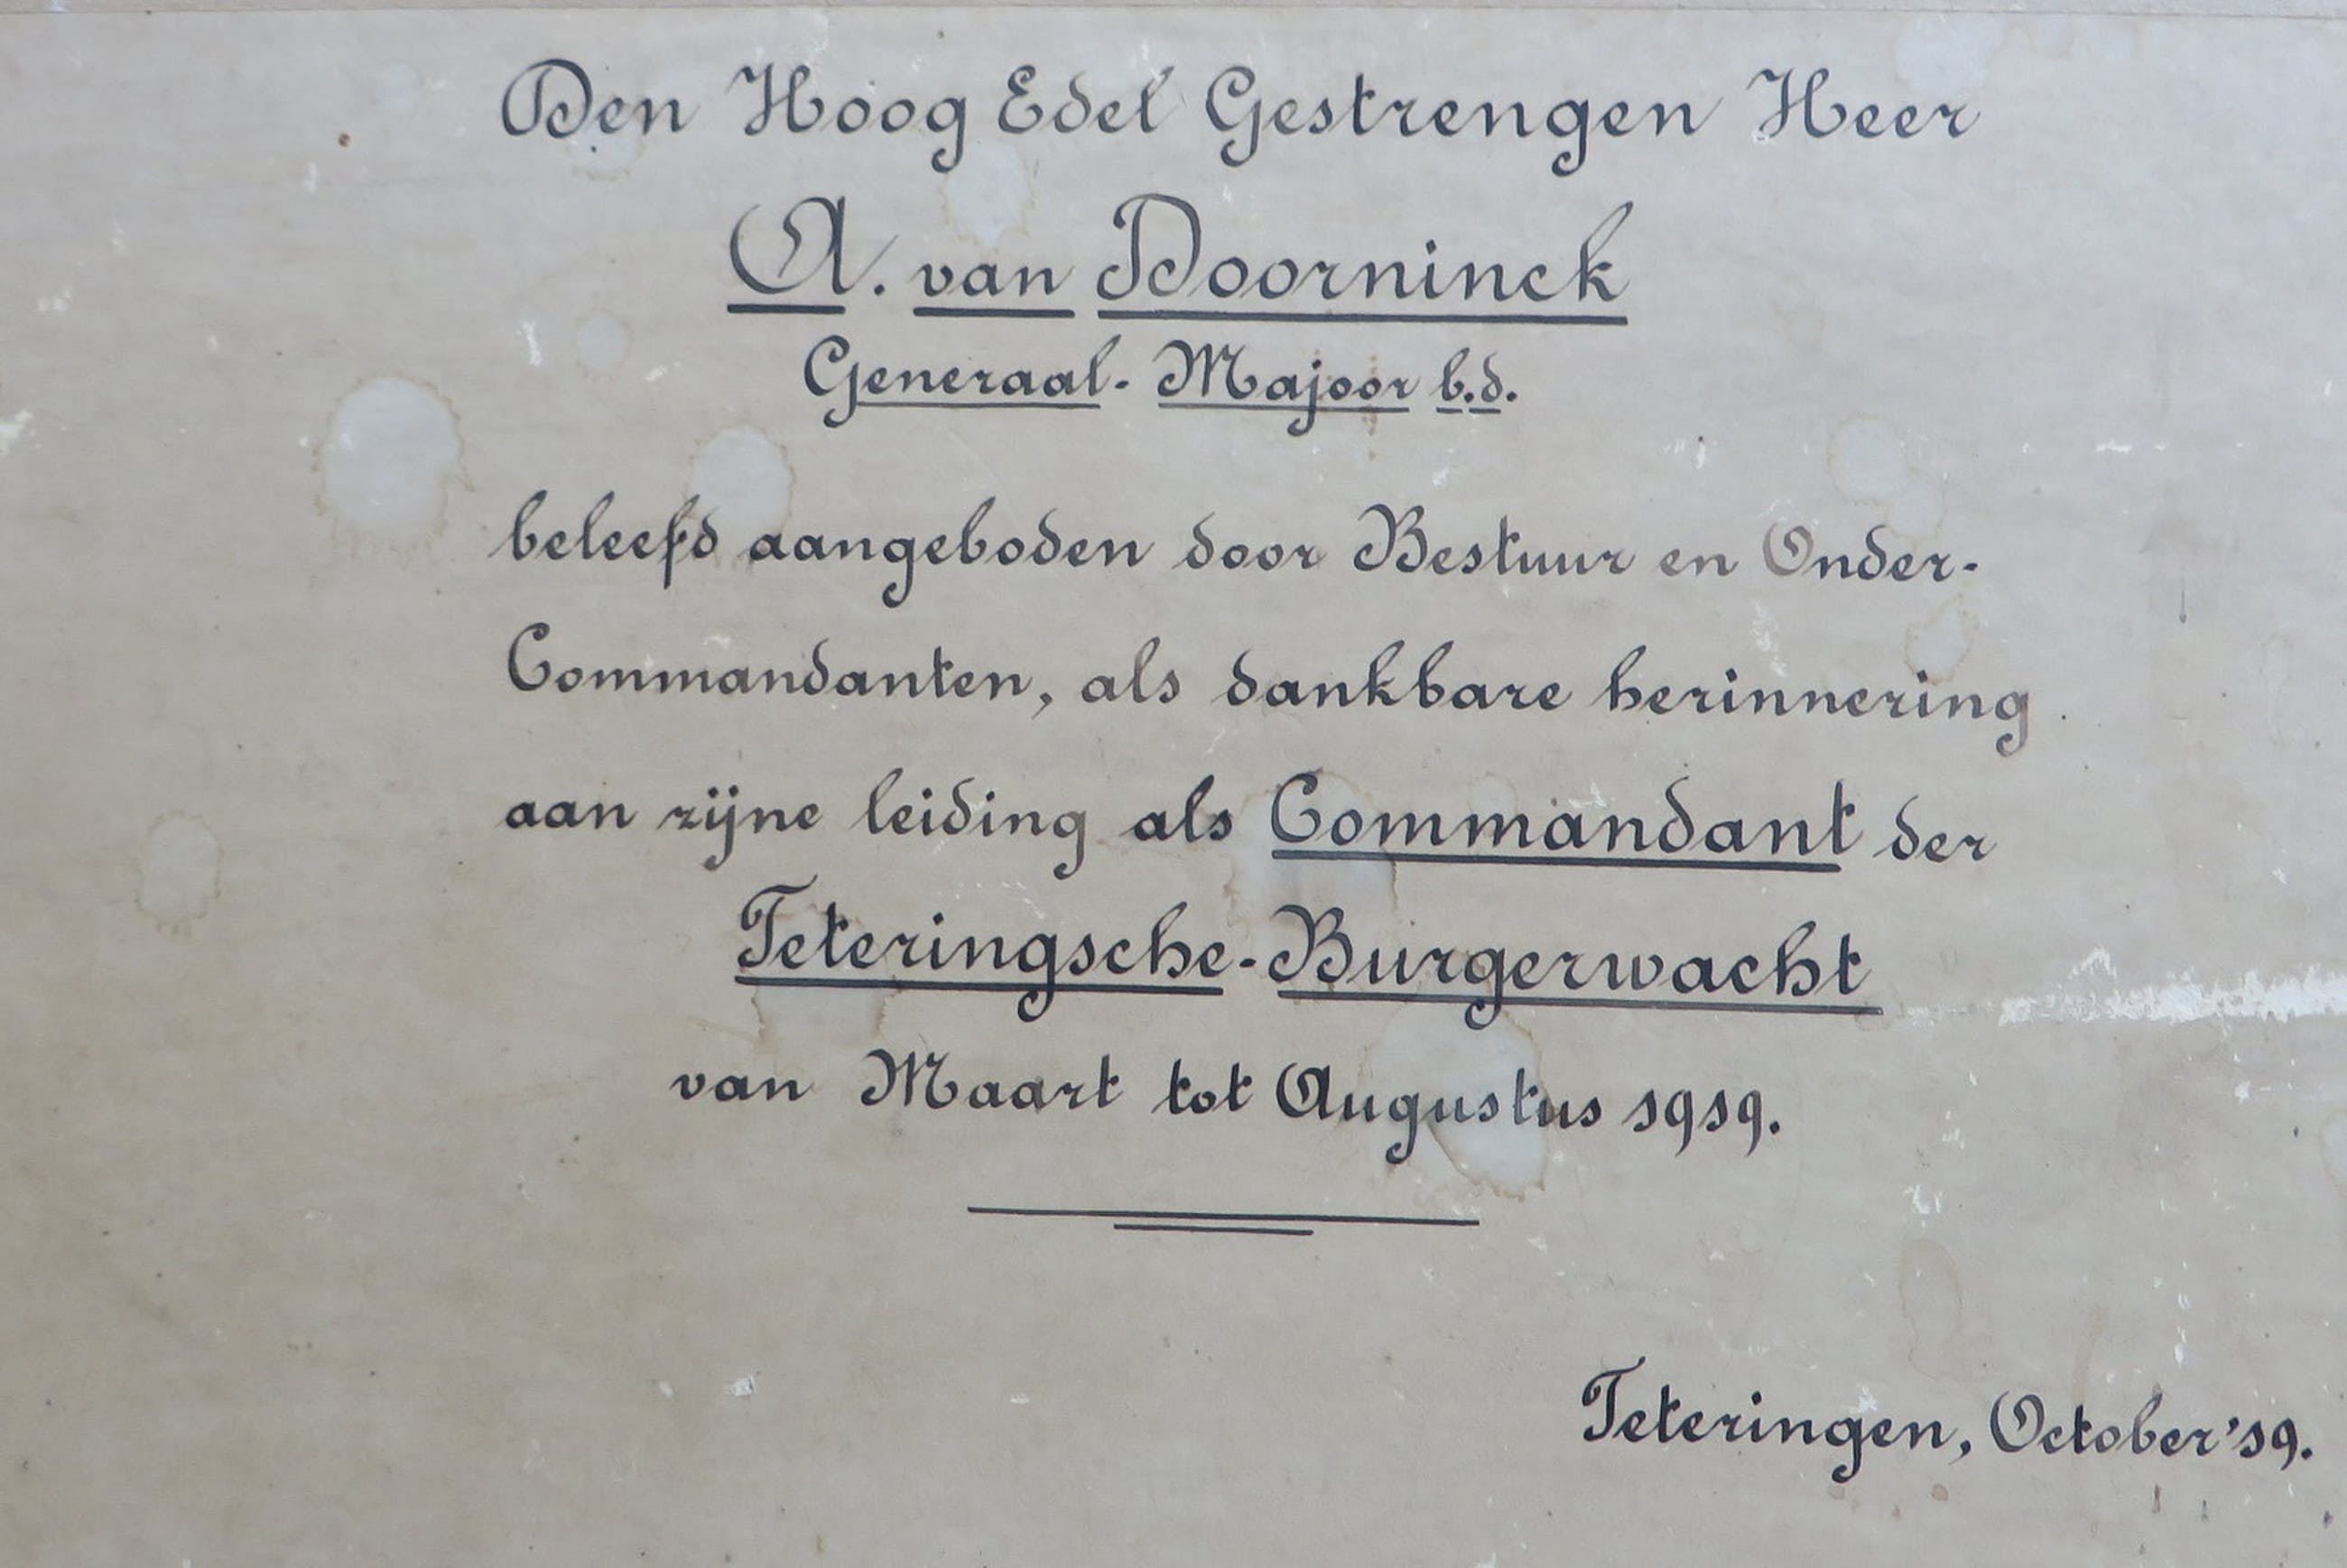 Den Hoog Edel Gestrengen Heer
A. van Doorninck
Generaal-Majoor b.d.
beleefd aangeboden door Bestuur en Onder-
Commandanten, als dankbare herinnering
aan zijne leiding als Commandant der
Teteringsche-Burgerwacht
van Maart tot Augustus 1919.
Teteringen, October '19.